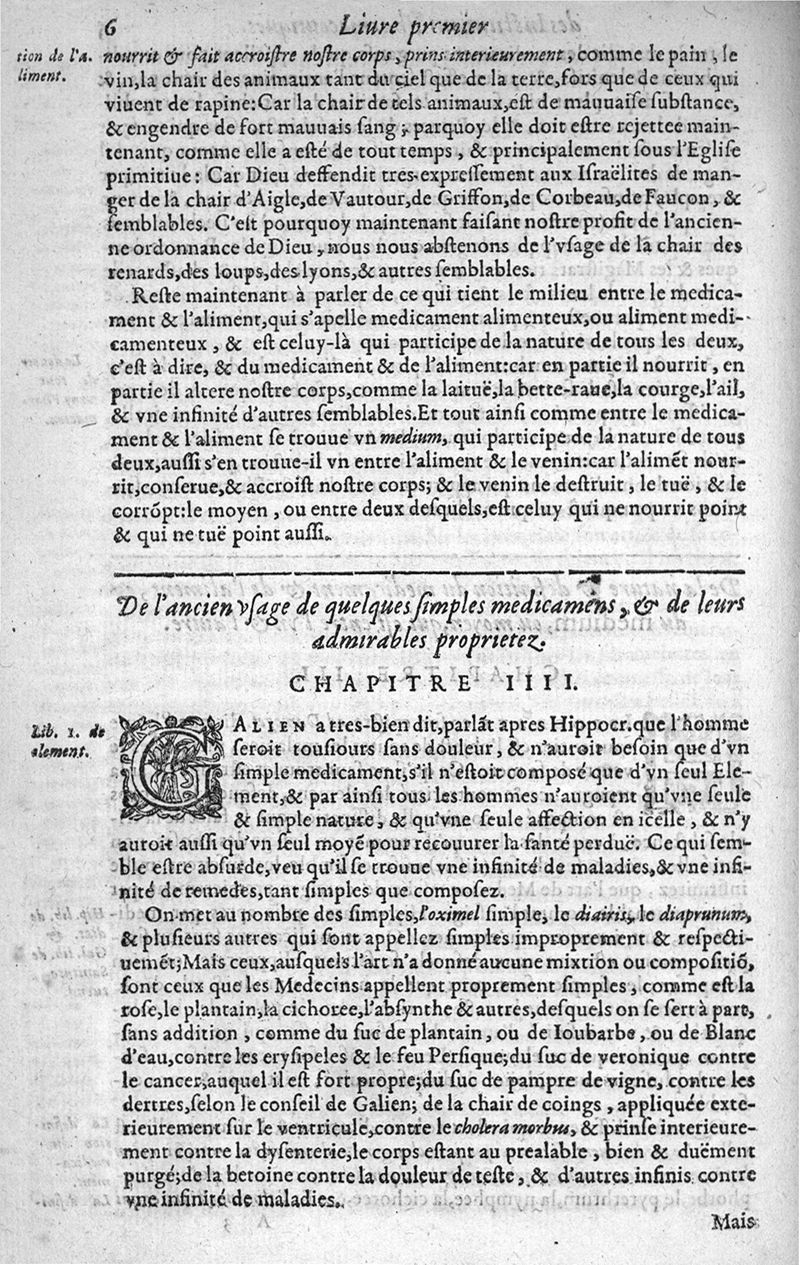 6 Liure premier
tion de l'a.
liment.
nourrit & fait accroiſtre noſtre corps, prins interieurement, comme le pain, le
vin, la chair des animaux tant du ciel que de la terre, fors que de ceux qui
viuent de rapine: Car la chair de tels animaux, eſt de mauuaiſe ſubſtance,
& engendre de fort mauuais ſang; parquoy elle doit eſtre rejettee main-
tenant, comme elle a eſté de tout temps, & principalement ſous l'Egliſe
primitiue: Car Dieu deffendit tres-expreſſement aux Iſraëlites de man-
ger de la chair d'Aigle, de Vautour, de Griffon, de Corbeau, de Faucon, &
ſemblables. C'eſt pourquoy maintenant faiſant noſtre profit de l'ancien-
ne ordonnance de Dieu, nous nous abſtenons de l'vſage de la chair des
renards, des loups, des lyons, & autres ſemblables.
Reſte maintenant à parler de ce qui tient le milieu entre le medica-
ment & l'aliment, qui s'apelle medicament alimenteux, ou aliment medi-
camenteux, & eſt celuy-là qui participe de la nature de tous les deux,
c'eſt à dire, & du medicament & de l'aliment: car en partie il nourrit, en
partie il altere noſtre corps, comme la laituë, la bette-raue, la courge, l'ail,
& vne infinité d'autres ſemblables. Et tout ainſi comme entre le medica-
ment & l'aliment ſe trouue vn medium, qui participe de la nature de tous
deux, auſſi s'en trouue-il vn entre l'aliment & le venin: car l'alimẽt nour-
rit, conſerue, & accroiſt noſtre corps; & le venin le deſtruit, le tuë, & le
corrõpt: le moyen, ou entre deux deſquels, eſt celuy qui ne nourrit point
& qui ne tuë point auſſi.
De l'ancien vſage de quelques ſimples medicamens, & de leurs
admirables proprietez.
CHAPITRE IIII.
Lib. 1. de
element.
GALIEN a tres-bien dit, parlãt apres Hippocr. que l'homme
ſeroit touſiours ſans douleur, & n'auroit beſoin que d'vn
ſimple medicament, s'il n'eſtoit compoſé que d'vn ſeul Ele-
ment, & par ainſi tous les hommes n'auroient qu'vne ſeule
& ſimple nature, & qu'vne ſeule affection en icelle, & n'y
auroit auſſi qu'vn ſeul moyẽ pour recouurer la ſanté perduë. Ce qui ſem-
ble eſtre abſurde, veu qu'il ſe trouue vne infinité de maladies, & vne infi-
nité de remedes, tant ſimples que compoſez.
On met au nombre des ſimples, l'oximel ſimple, le diairis, le diaprunum,
& pluſieurs autres qui ſont appellez ſimples improprement & reſpecti-
uemẽt; Mais ceux, auſquels l'art n'a donné aucune mixtion ou compoſitiõ,
ſont ceux que les Medecins appellent proprement ſimples, comme eſt la
roſe, le plantain, la cichoree, l'abſynthe & autres, deſquels on ſe ſert à part,
ſans addition, comme du ſuc de plantain, ou de Ioubarbe, ou de Blanc
d'eau, contre les eryſipeles & le feu Perſique; du ſuc de veronique contre
le cancer, auquel il eſt fort propre; du ſuc de pampre de vigne, contre les
dertres, ſelon le conſeil de Galien; de la chair de coings, appliquée exte-
rieurement ſur le ventricule, contre le cholera morbus, & prinſe interieure-
ment contre la dyſenterie, le corps eſtant au prealable, bien & duëment
purgé; de la betoine contre la douleur de teſte, & d'autres infinis contre
vne infinité de maladies.
Mais